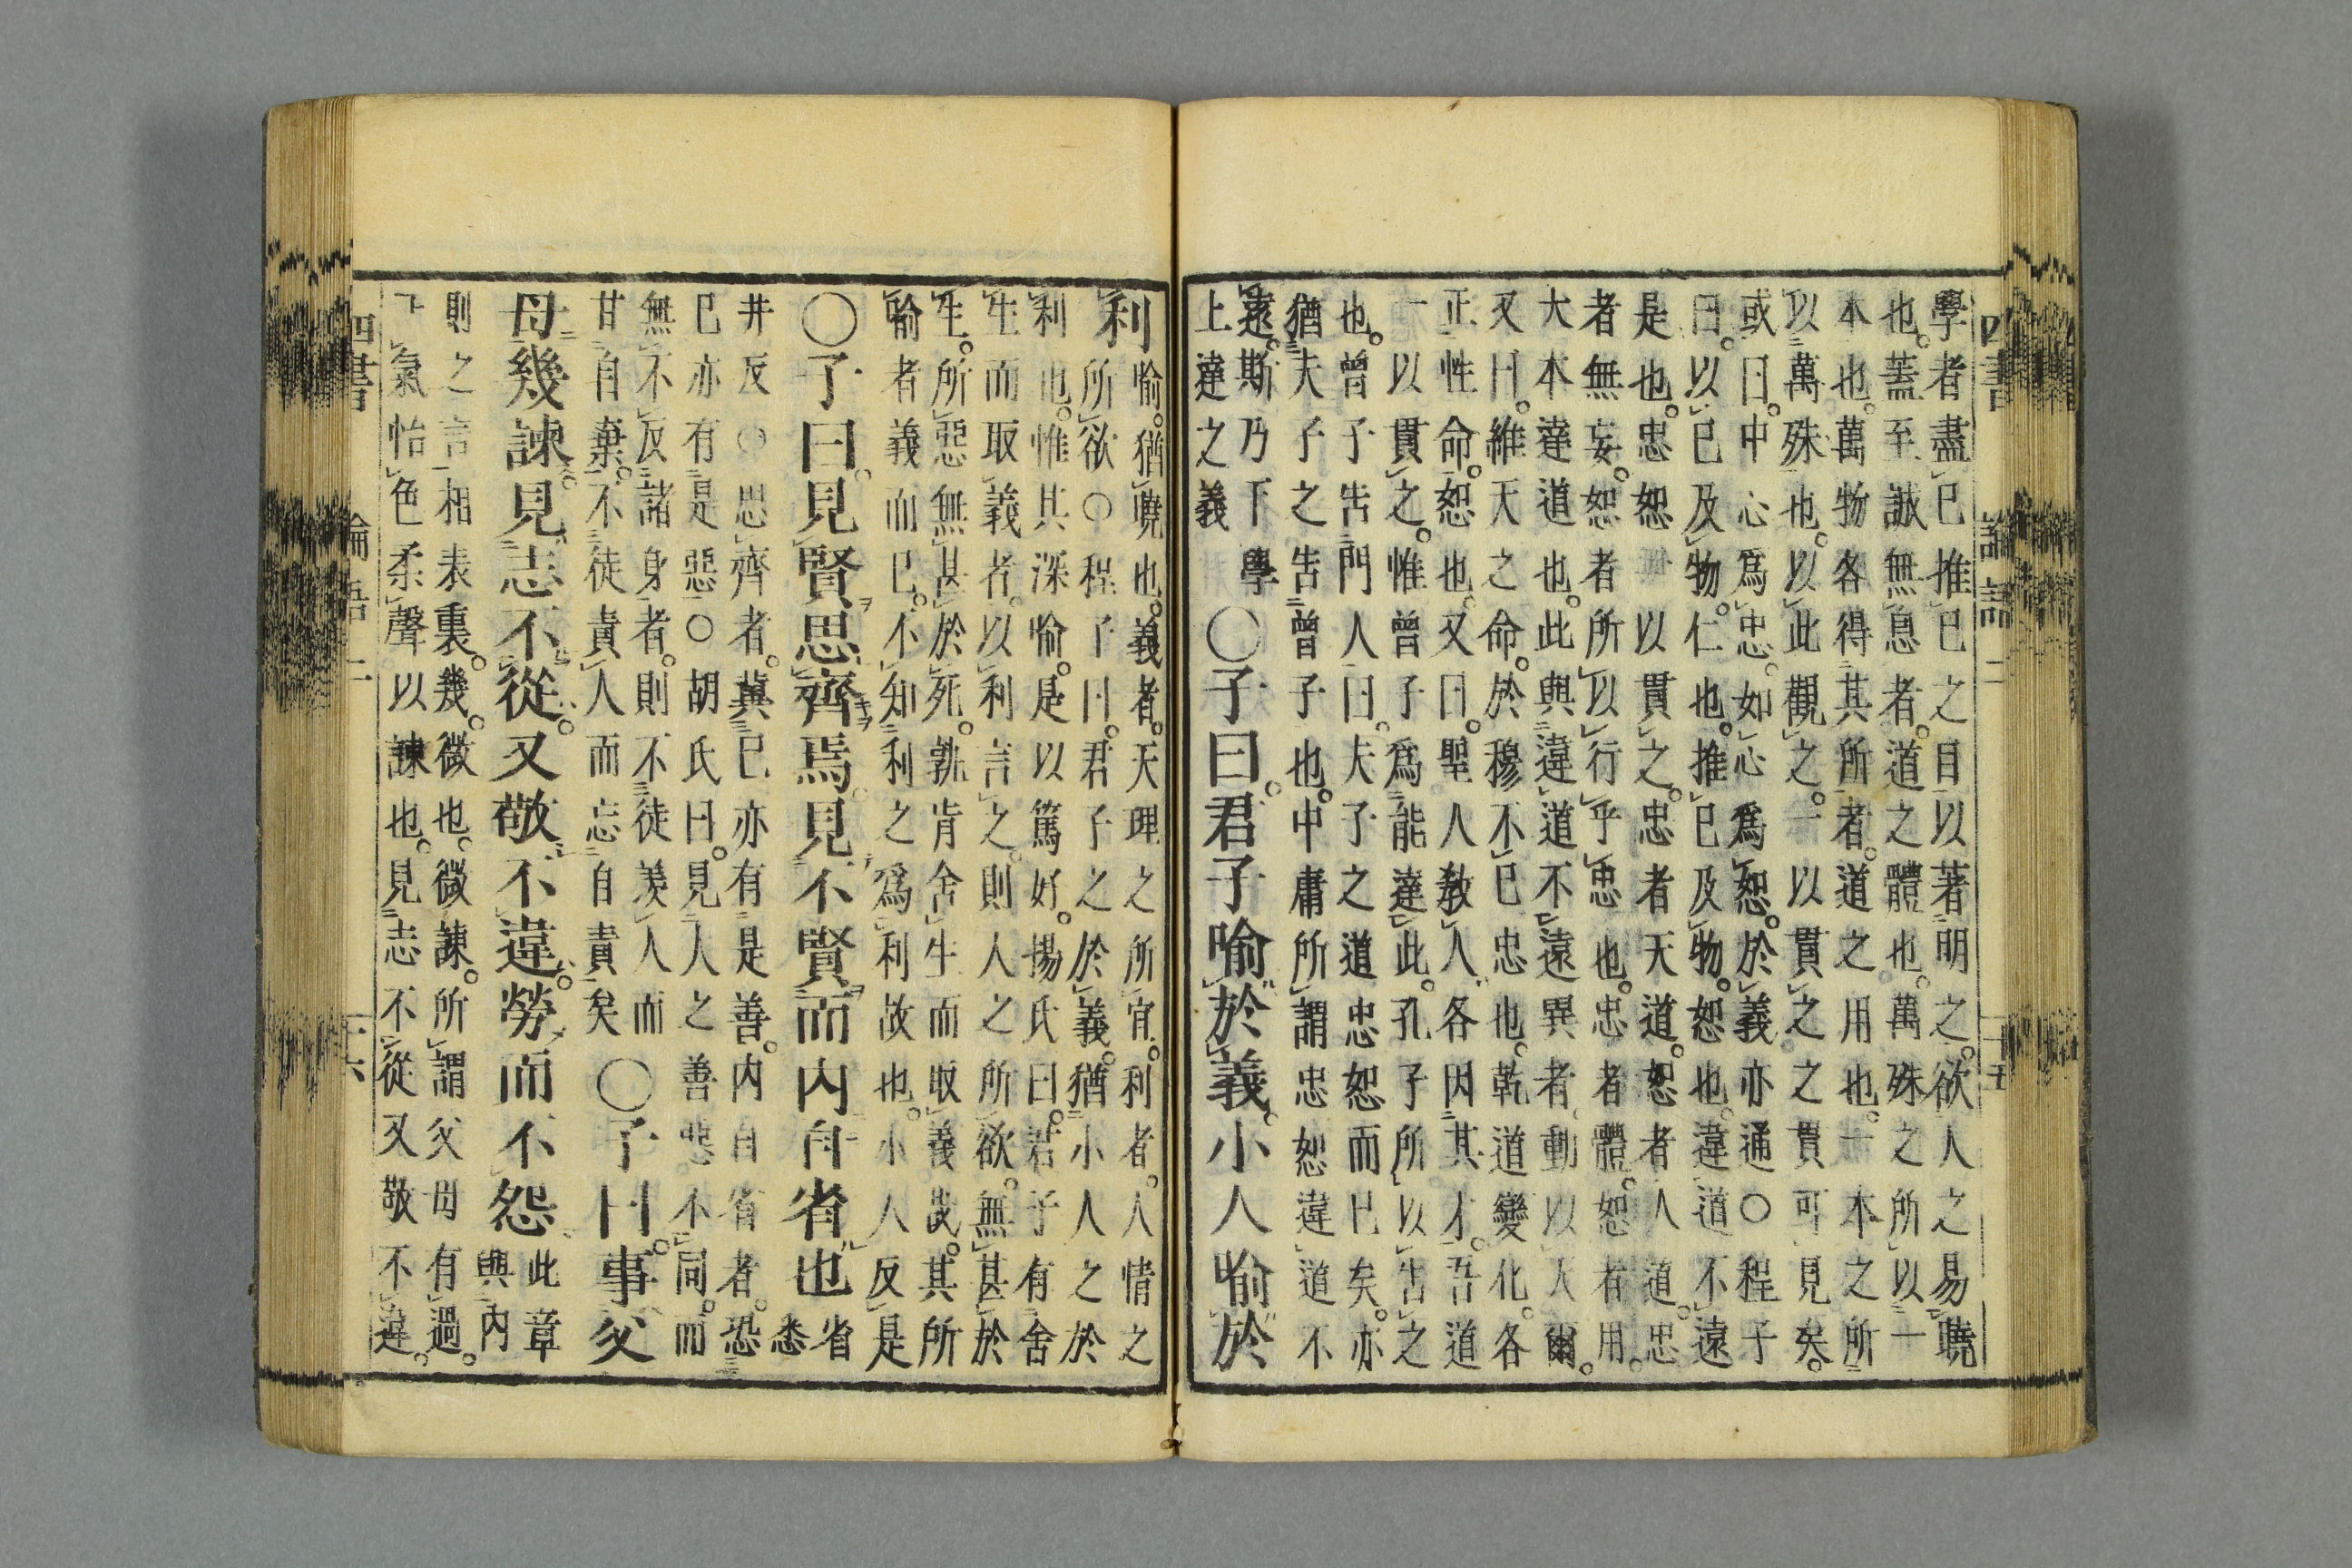 四書 論語二 二十五
學者盡已推已之目以著明之。欲人之易曉
也。蓋至誠無息者。道之體也。萬殊之所以一
本也。萬物各得其所者。道之用也。一本之所
以萬殊也。以此觀之。一以貫之之貫可見矣。
或曰。中心爲忠。如心爲恕。於義亦通○程子
曰。以已及物。仁也。推已及物。恕也。違道不遠
是也。忠恕一以貫之。忠者天道。恕者人道。忠
者無妄。恕者所以行乎忠也。忠者體。恕者用。
大本達道也。此與違道不遠異者。動以天爾。
又曰。維天之命。於穆不已忠也。乾道變化。各
正性命。恕也。又曰。聖人敎人各因其才。吾道
一以貫之。惟曾子爲能達此。孔子所以告之
也。曾子告門人曰。夫子之道忠恕而已矣。亦
猶夫子之告曾子也。中庸所謂忠恕違道不
遠。斯乃下學
上達之義
○子曰。君子喻於義。小人喻於
利
喻。猶曉也。義者。天理之所宜。利者。人情之
所欲○程子曰。君子之於義。猶小人之於
利也。惟其深喻。是以篤好。楊氏曰。君子有舍
生而取義者。以利言之。則人之所欲。無甚於
生。所惡無甚於死。孰肯舍生而取義哉。其所
喻者義而已。不知利之爲利故也。小人反是
○子曰。見賢思齊焉。見不賢而内自省也
省
悉
井反○思齊者。冀已亦有是善。内自省者。恐
已亦有是惡○胡氏曰。見人之善惡不同。而
無不反諸身者。則不徒羨人而
甘自棄。不徒責人而忘自責矣
○子曰。事父
母幾諫。見志不從。又敬不違。勞而不怨
此章
與内
則之言相表裏。幾。微也。微諫。所謂父母有過。
下氣怡色柔聲以諫也。見志不從又敬不違。
四書 論語二 二十六